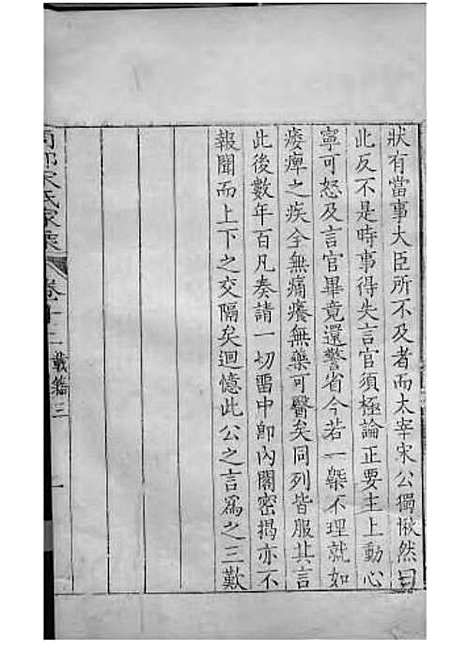 狀有當事大臣所不及者而太宰宋公獨愀然曰
此反不是時事得失言官須極論正要主上動心
寧可怒及言官畢竟還警省今若一槩不理就如
痿痺之疾全無痛癢無藥可醫矣同列皆服其言
此後數年百凡奏請一切畱中卽內閣密揭亦不
報聞而上下之交隔矣迴憶此公之言爲之三歎
宋氏家乘 卷十二 載籍三 一